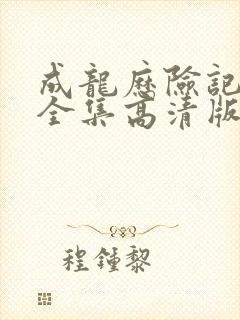 成龍歷險記
全集高清版
程鍾黎